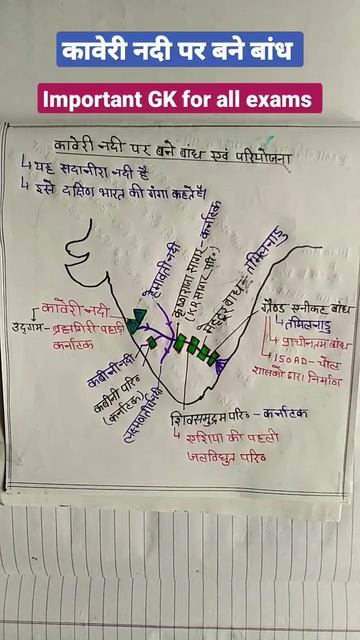 कावेरी नदी पर बने बांध
Important GK for all exams
कावेरी नदी पर बने बांध एवं परियोजना
यह सदानीरा नदी है
इसे दक्षिण भारत की गंगा कहते है।
हेमावती नदी
कृष्णाराजा सागर - कर्नाटक
(KR सागर परि०)
मेट्टूर बांध - तमिलनाडु
कावेरी नदी
उदगम - ब्रह्मगिरी पहाड़ी
कर्नाटक
ग्रैण्ड एनीकट बांध
तमिलनाडु
प्राचीनतम बांध
150AD - चोल
शासकों द्वारा निर्माण
कबीनी नदी
कबीनी परि०
(कर्नाटक)
लक्ष्मणतीर्थ नदी
शिवसमुद्रम परि० - कर्नाटक
एशिया की पहली
जलविधुत परि०